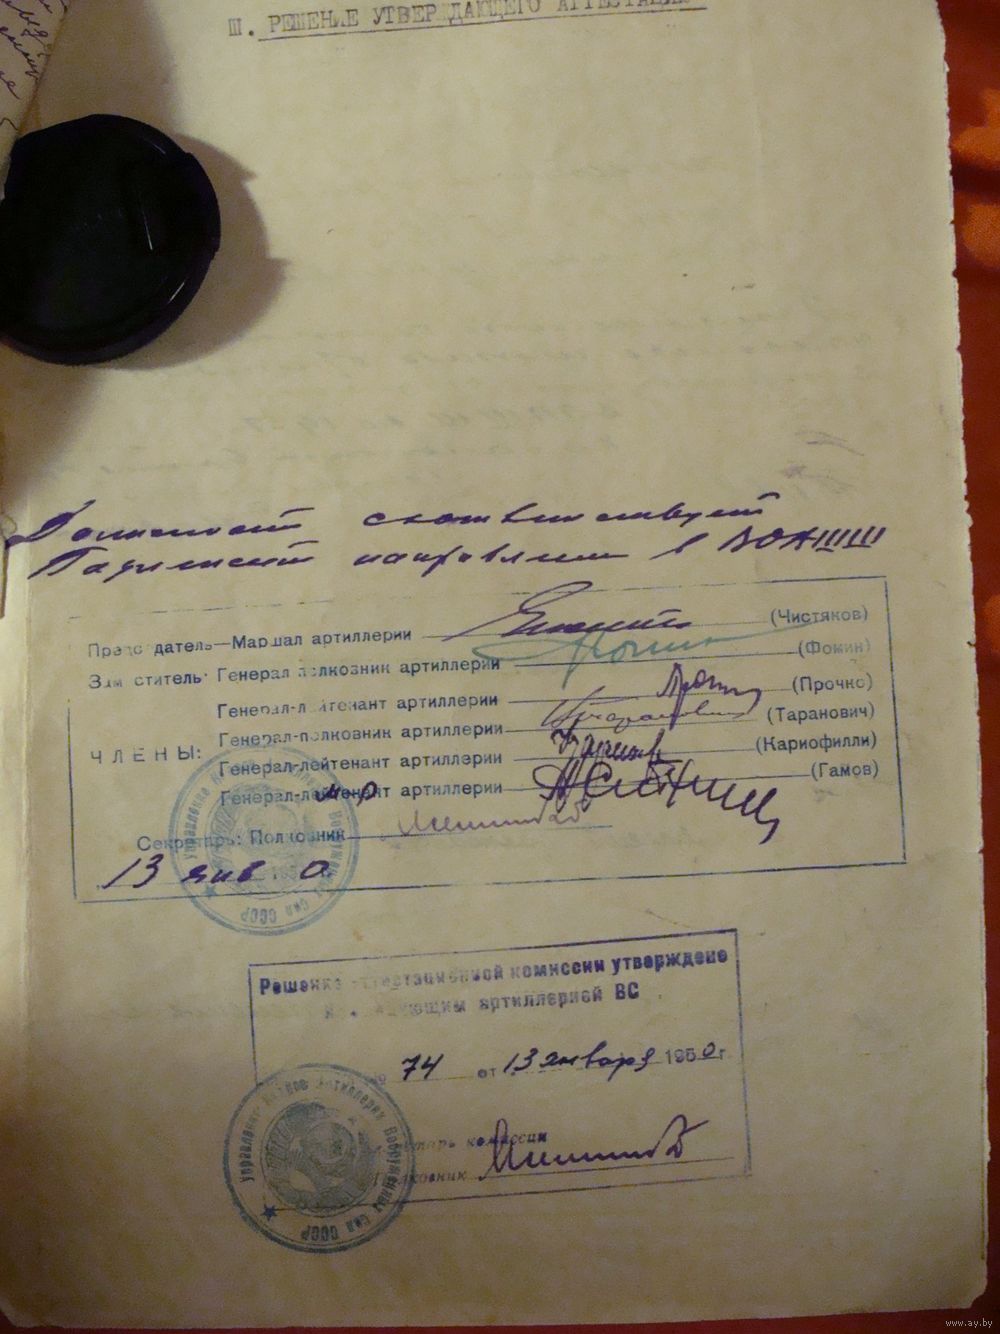 Ш. РЕШЕНИЕ УТВЕРЖДАЮЩЕГО АТТЕСТАЦИЮ
Должности соответствует
направлен в
Председатель—Маршал артиллерии (Чистяков)
Заместитель: Генерал-полковник артиллерии (Фомин)
Генерал-лейтенант артиллерии (Прочко)
ЧЛЕНЫ: Генерал-полковник артиллерии (Таранович)
Генерал-лейтенант артиллерии (Кариофилли)
Генерал-лейтенант артиллерии (Гамов)
Секретарь: Полковник
13 янв 0
Решение аттестационной комиссии утверждено
Командующим артиллерией ВС
№ 74 от 13 января 1950 г.
Секретарь комиссии
Полковник
Управление Кадров Артиллерии Вооруженных Сил СССР
www.ay.by